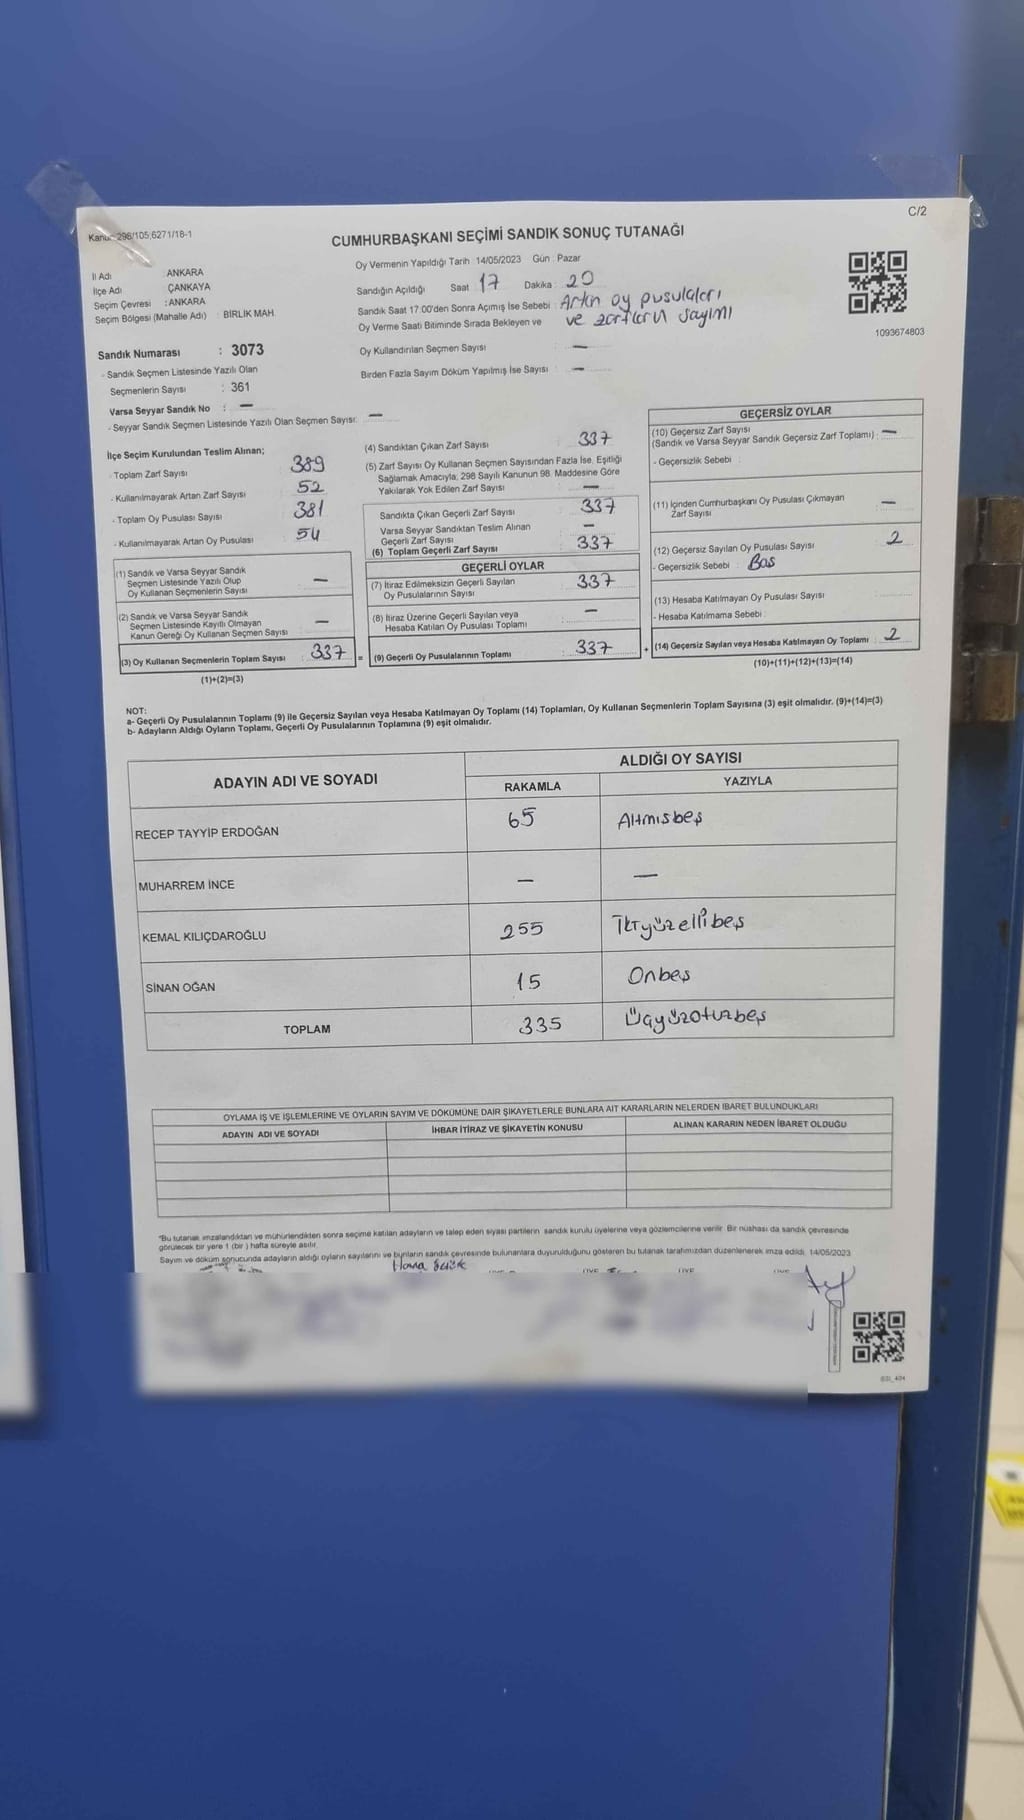 C/2
Kanun: 298/105;6271/18-1
CUMHURBAŞKANI SEÇİMİ SANDIK SONUÇ TUTANAĞI
İl Adı : ANKARA
İlçe Adı : ÇANKAYA
Seçim Çevresi : ANKARA
Seçim Bölgesi (Mahalle Adı) : BİRLİK MAH.
Oy Vermenin Yapıldığı Tarih : 14/05/2023 Gün : Pazar
Sandığın Açıldığı Saat 17 Dakika : 20
Sandık Saat 17.00'den Sonra Açımış İse Sebebi : Artan oy pusulaları
Oy Verme Saati Bitiminde Sırada Bekleyen ve ve zarfların sayımı
Oy Kullandırılan Seçmen Sayısı : —
Birden Fazla Sayım Döküm Yapılmış İse Sayısı : —
1093674803
Sandık Numarası : 3073
- Sandık Seçmen Listesinde Yazılı Olan
Seçmenlerin Sayısı : 361
Varsa Seyyar Sandık No : —
- Seyyar Sandık Seçmen Listesinde Yazılı Olan Seçmen Sayısı: —
İlçe Seçim Kurulundan Teslim Alınan;
- Toplam Zarf Sayısı : 389
- Kullanılmayarak Artan Zarf Sayısı : 52
- Toplam Oy Pusulası Sayısı : 381
- Kullanılmayarak Artan Oy Pusulası : 54
(1) Sandık ve Varsa Seyyar Sandık
Seçmen Listesinde Yazılı Olup
Oy Kullanan Seçmenlerin Sayısı : —
(2) Sandık ve Varsa Seyyar Sandık
Seçmen Listesinde Kayıtlı Olmayan
Kanun Gereği Oy Kullanan Seçmen Sayısı : —
(3) Oy Kullanan Seçmenlerin Toplam Sayısı : 337 =
(1)+(2)=(3)
(4) Sandıktan Çıkan Zarf Sayısı : 337
(5) Zarf Sayısı Oy Kullanan Seçmen Sayısından Fazla İse, Eşitliği
Sağlamak Amacıyla; 298 Sayılı Kanunun 98. Maddesine Göre
Yakılarak Yok Edilen Zarf Sayısı : —
Sandıkta Çıkan Geçerli Zarf Sayısı : 337
Varsa Seyyar Sandıktan Teslim Alınan
Geçerli Zarf Sayısı : —
(6) Toplam Geçerli Zarf Sayısı : 337
GEÇERLİ OYLAR
(7) İtiraz Edilmeksizin Geçerli Sayılan
Oy Pusulalarının Sayısı : 337
(8) İtiraz Üzerine Geçerli Sayılan veya
Hesaba Katılan Oy Pusulası Toplamı : —
(9) Geçerli Oy Pusulalarının Toplamı : 337 +
GEÇERSİZ OYLAR
(10) Geçersiz Zarf Sayısı
(Sandık ve Varsa Seyyar Sandık Geçersiz Zarf Toplamı) : —
- Geçersizlik Sebebi :
(11) İçinden Cumhurbaşkanı Oy Pusulası Çıkmayan
Zarf Sayısı : —
(12) Geçersiz Sayılan Oy Pusulası Sayısı : 2
- Geçersizlik Sebebi : Bos
(13) Hesaba Katılmayan Oy Pusulası Sayısı :
- Hesaba Katılmama Sebebi :
(14) Geçersiz Sayılan veya Hesaba Katılmayan Oy Toplamı : 2
(10)+(11)+(12)+(13)=(14)
NOT:
a- Geçerli Oy Pusulalarının Toplamı (9) ile Geçersiz Sayılan veya Hesaba Katılmayan Oy Toplamı (14) Toplamları, Oy Kullanan Seçmenlerin Toplam Sayısına (3) eşit olmalıdır. (9)+(14)=(3)
b- Adayların Aldığı Oyların Toplamı, Geçerli Oy Pusulalarının Toplamına (9) eşit olmalıdır.
ADAYIN ADI VE SOYADI
ALDIĞI OY SAYISI
RAKAMLA YAZIYLA
RECEP TAYYİP ERDOĞAN 65 Altmısbeş
MUHARREM İNCE — —
KEMAL KILIÇDAROĞLU 255 İkiyüzellibeş
SİNAN OĞAN 15 Onbeş
TOPLAM 335 Üçyüzotuzbeş
OYLAMA İŞ VE İŞLEMLERİNE VE OYLARIN SAYIM VE DÖKÜMÜNE DAİR ŞİKAYETLERLE BUNLARA AİT KARARLARIN NELERDEN İBARET BULUNDUKLARI
ADAYIN ADI VE SOYADI İHBAR İTİRAZ VE ŞİKAYETİN KONUSU ALINAN KARARIN NEDEN İBARET OLDUĞU
*Bu tutanak imzalandıktan ve mühürlendikten sonra seçime katılan adayların ve talep eden siyasi partilerin sandık kurulu üyelerine veya gözlemcilerine verilir. Bir nüshası da sandık çevresinde
görülecek bir yere 1 (bir ) hafta süreyle asılır.
Sayım ve döküm sonucunda adayların aldığı oyların sayılarını ve bunların sandık çevresinde bulunanlara duyurulduğunu gösteren bu tutanak tarafımızdan düzenlenerek imza edildi. 14/05/2023